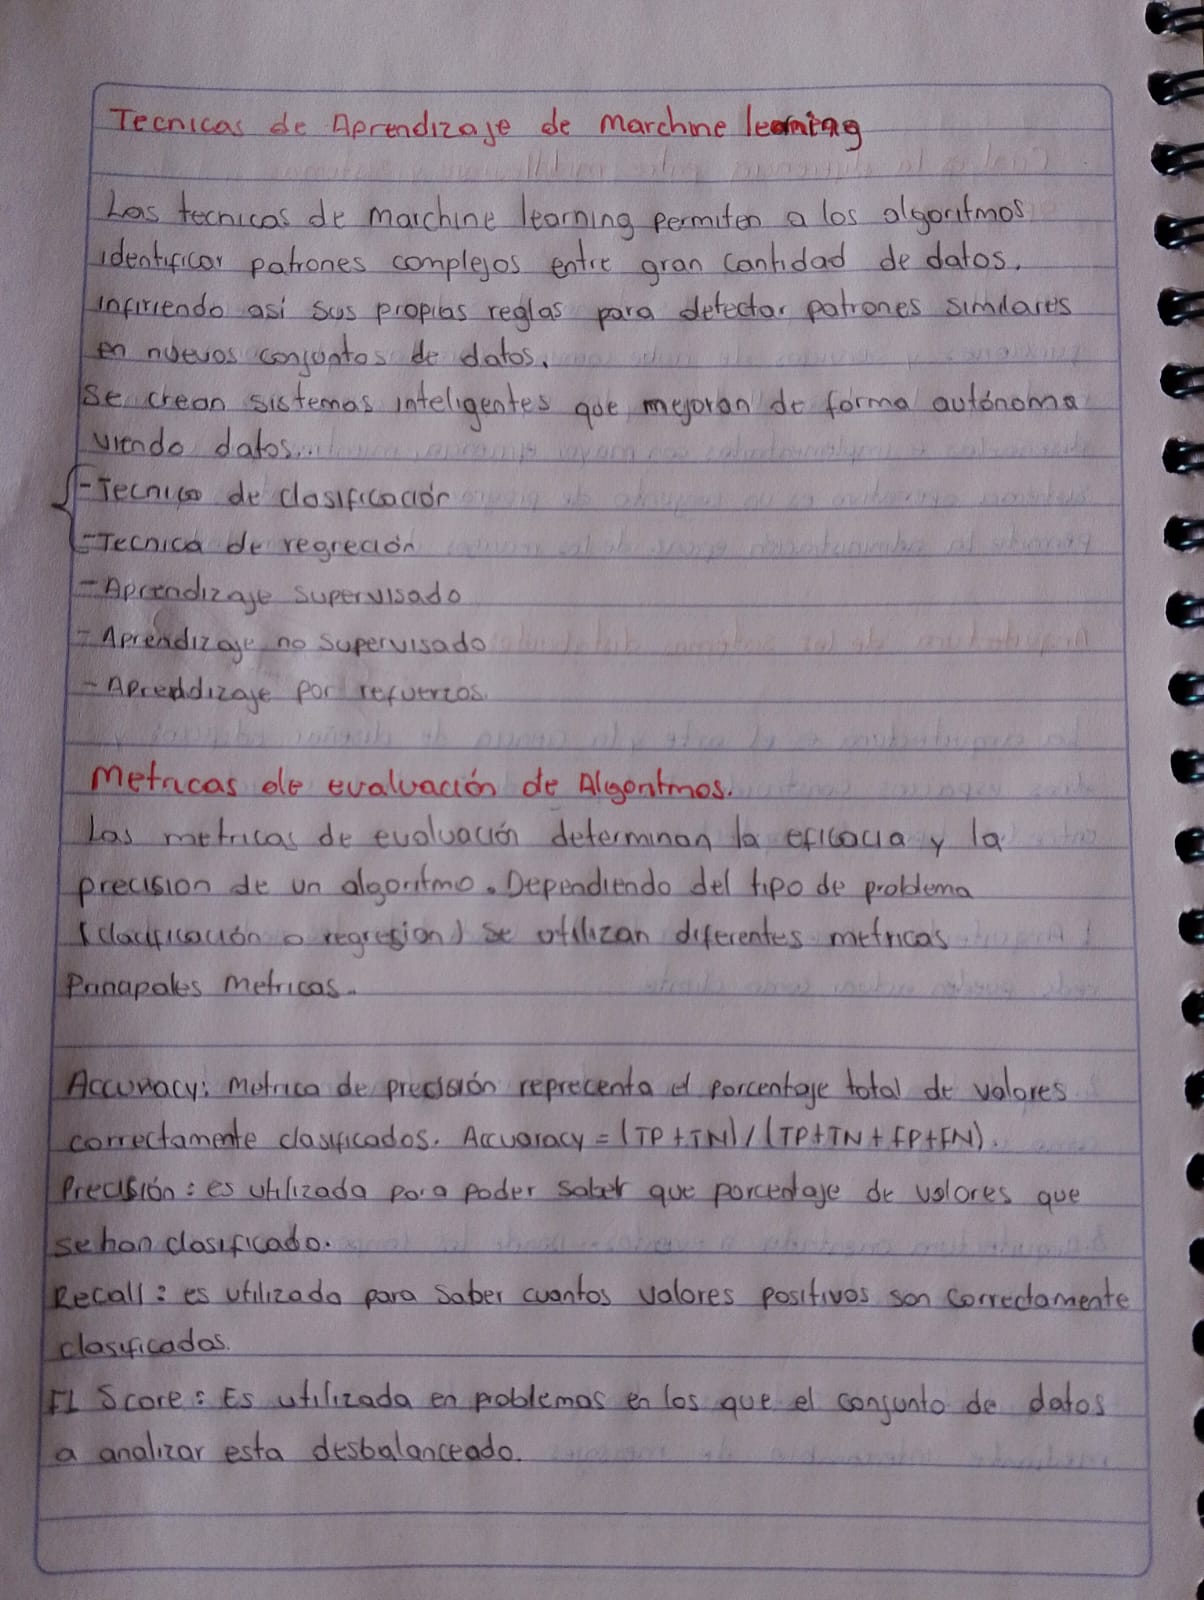 Tecnicas de Aprendizaje de marchine learning
Las tecnicas de marchine learning permiten a los algoritmos
identificar patrones complejos entre gran cantidad de datos,
infiriendo así sus propias reglas para detectar patrones similares
en nuevos conjuntos de datos.
Se crean sistemas inteligentes que mejoran de forma autónoma
viendo datos.
-Tecnica de clasificación
-Tecnica de regreción
-Aprendizaje supervisado
-Aprendizaje no supervisado
-Apreddizaje por refuerzos.
Metricas de evaluación de Algoritmos.
Las metricas de evaluación determinan la eficacia y la
precision de un algoritmo. Dependiendo del tipo de problema
(clacificación o regresion) se utilizan diferentes metricas.
Principales metricas.
Accuracy: Metrica de precisión reprecenta el porcentaje total de valores
correctamente clasificados. Accuaracy = (TP+TN)/(TP+TN+FP+FN).
Precisión: es utilizada para poder saber que porcentaje de valores que
se han clasificado.
Recall: es utilizada para saber cuantos valores positivos son correctamente
clasificados.
F1 Score: Es utilizada en problemas en los que el conjunto de datos
a analizar esta desbalanceado.